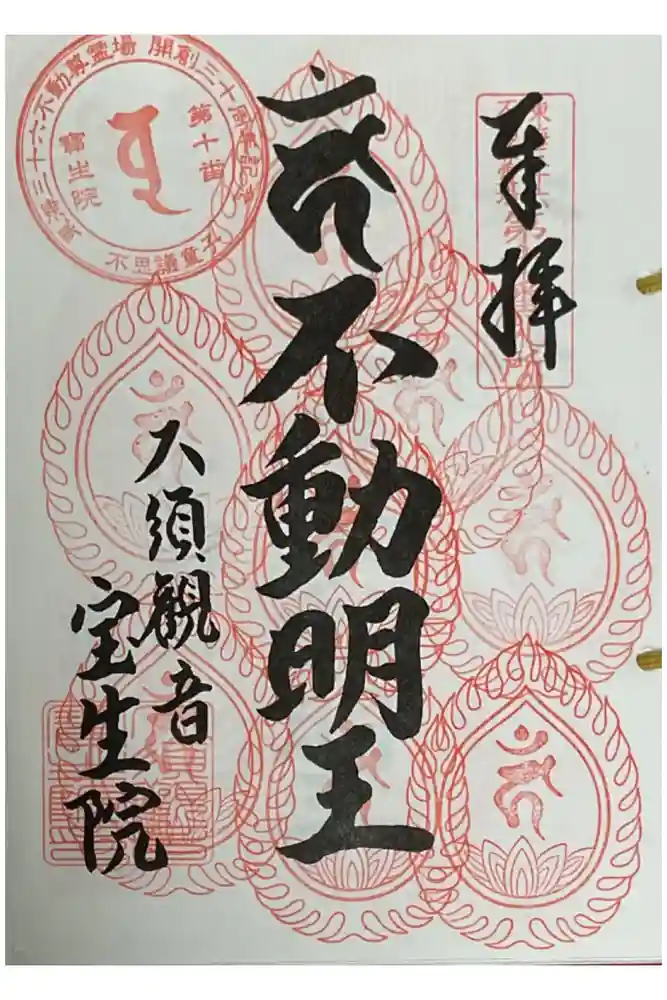 奉拝
不動明王
大須観音
宝生院
東海三十六不動尊霊場 開創三十周年記念
第十番
寶生院
不思議童子